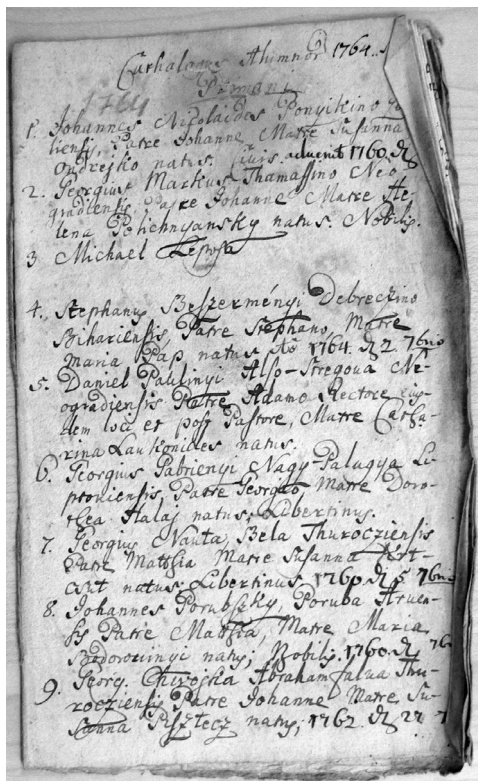 Cathalogus Alumnor 1764.
Primani
1764
1. Johannes Nicolaides Ponyikino
liensis, Patre Johanne Matre Susanna
Ondrejko natus. Civis. advenit 1760. d
2. Georgius Markus Thamassino Neo-
gradiensis Patre Johanne Matre He-
lena Polichnyansky natus. Nobilis.
3. Michael
4. Stephanus Beszerményi Debreczino
Bihariensis, Patre Stephano, Matre
Maria Pap natus Ao 1764. d. 2. 7brio
5. Daniel Paulinyi Also-Stregova Ne-
ogradiensis Patre Adamo Rectore ejus-
dem loci et post Pastore, Matre Catha-
rina Laukonides natus.
6. Georgius Gabrienyi Nagy-Palugya Li-
ptoviensis, Patre Georgio, Matre Doro-
thea Halaj natus, Libertinus.
7. Georgius Nauta, Bela Thurocziensis
Patre Matthia Matre Susanna
natus Libertinus. 1760. d. 5 7brio
8. Johannes Porubszky, Poruba Arven-
sis Patre Mathia, Matre Maria
natus, Nobilis. 1760. d. 7b
9. Georg. Abrahamfalva Thu-
rocziensis Patre Johanne Matre Su-
sanna natus, 1762. d. 27 7